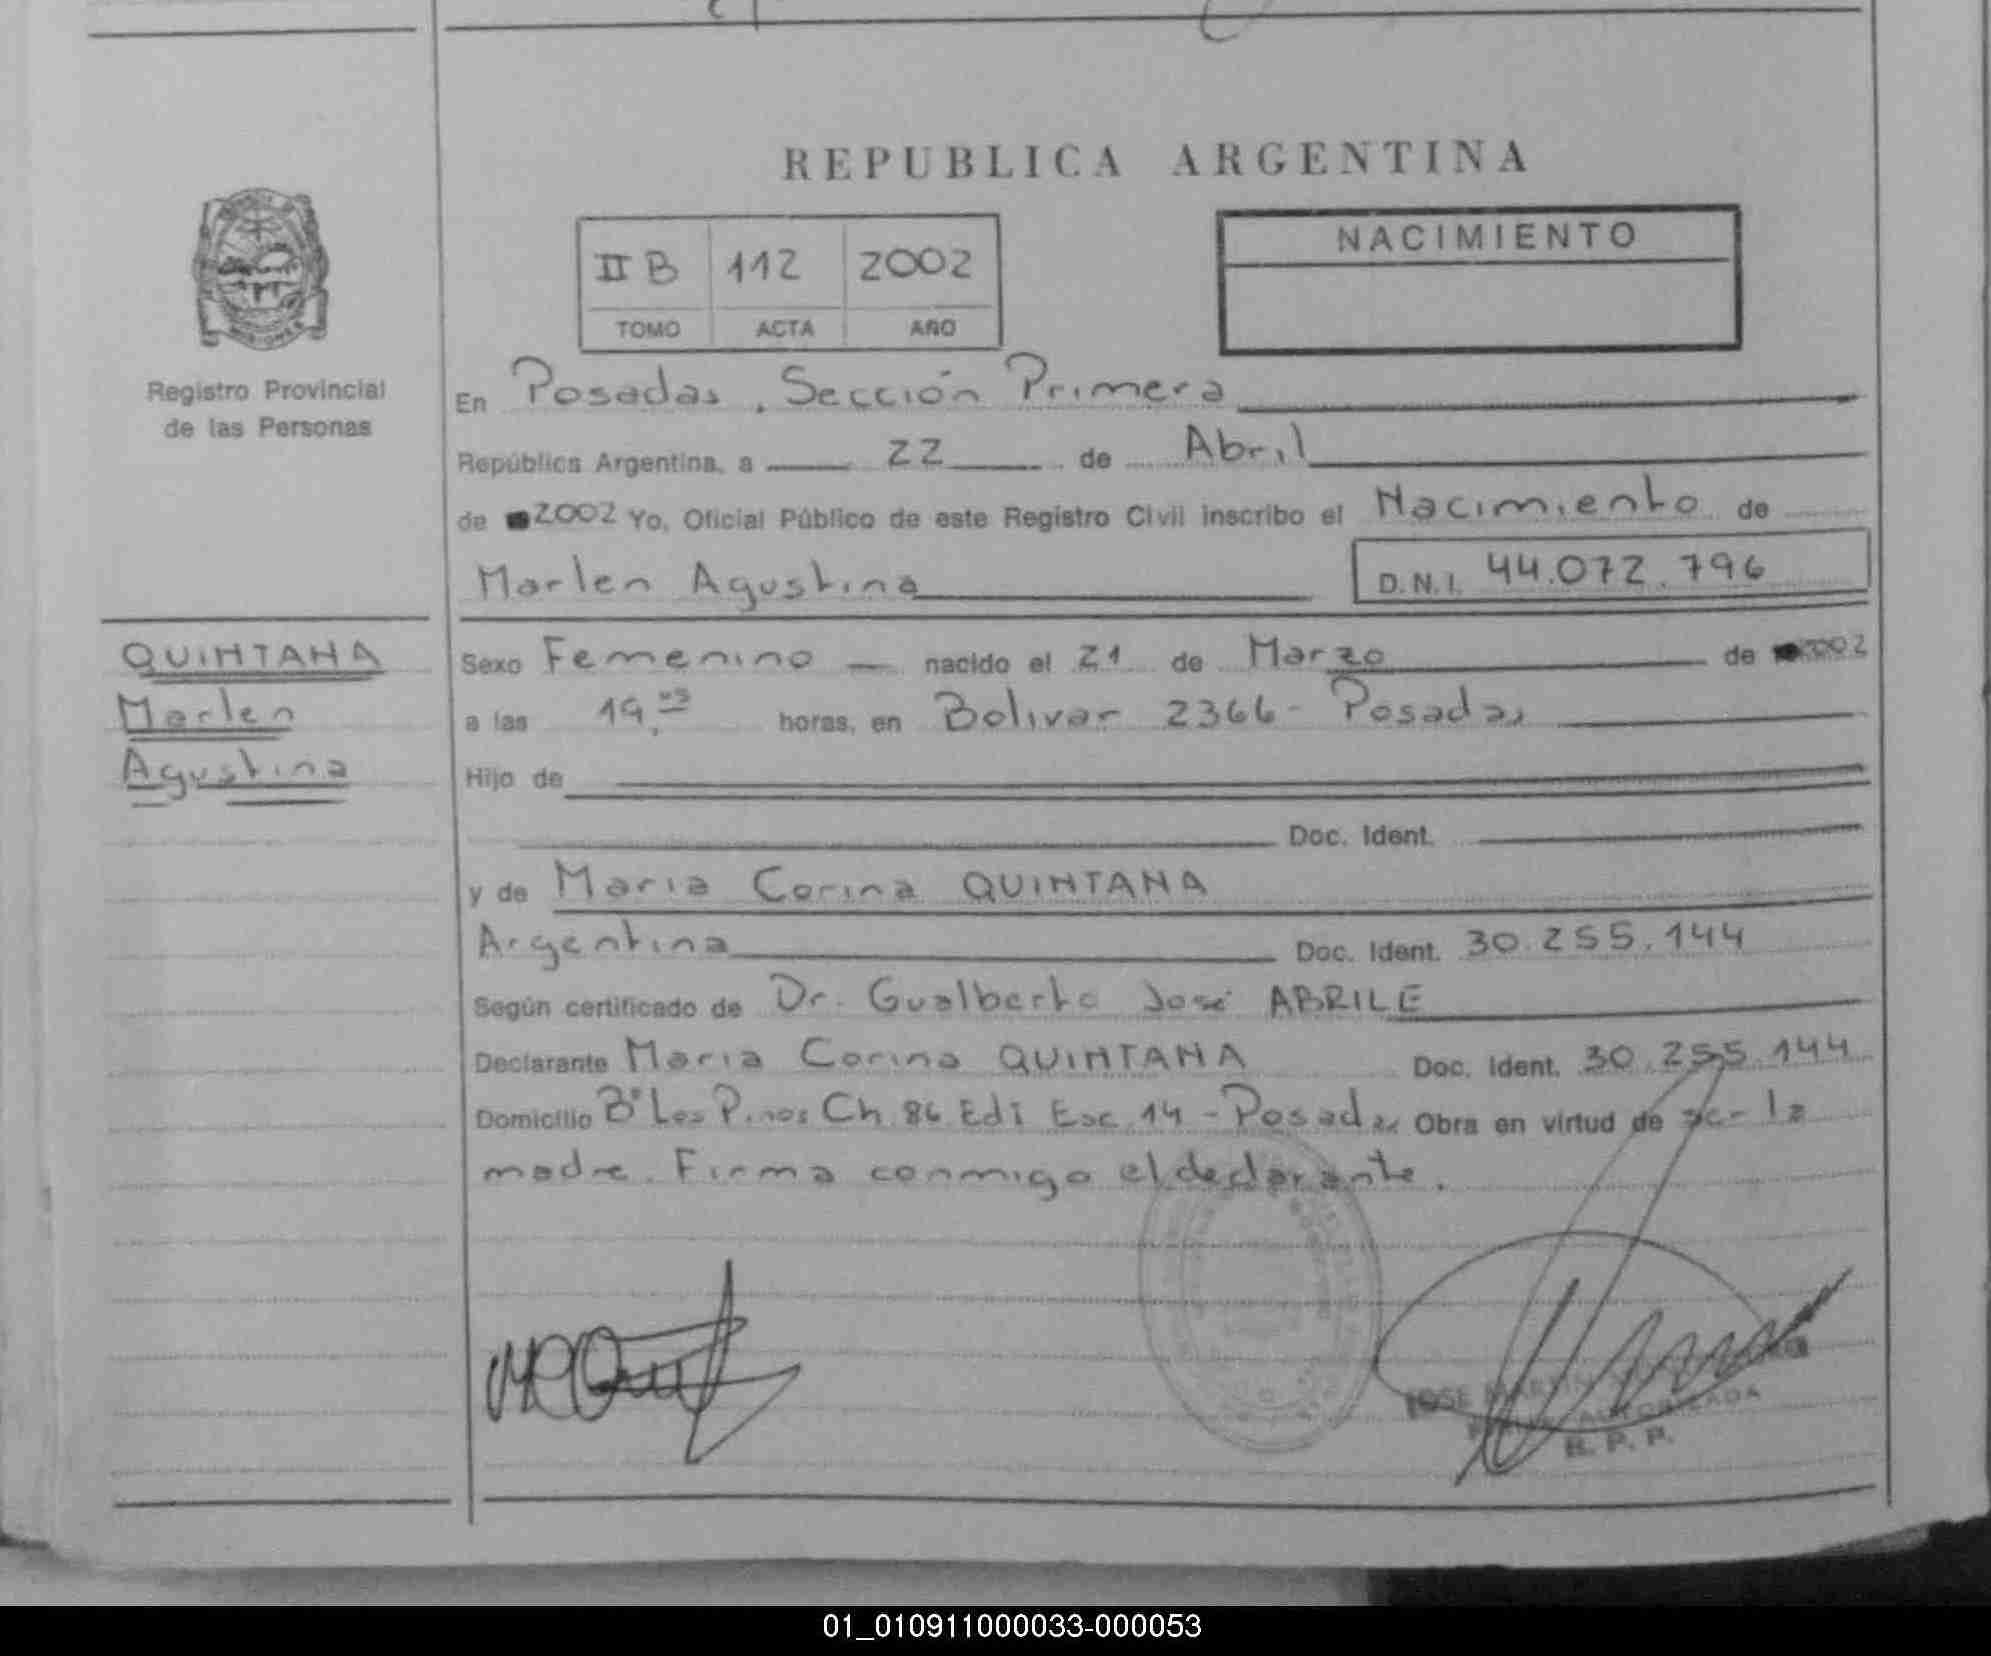 REPUBLICA ARGENTINA
NACIMIENTO
II B 112 2002
TOMO ACTA AÑO
Registro Provincial
de las Personas
En Posadas, Sección Primera
República Argentina, a 22 de Abril
de 2002 Yo, Oficial Público de este Registro Civil inscribo el Nacimiento de
Marlen Agustina D.N.I. 44.072.796
QUINTANA
Marlen
Agustina
Sexo Femenino nacido el 21 de Marzo de 2002
a las 19, horas, en Bolivar 2366 - Posadas
Hijo de
Doc. Ident.
y de Maria Corina QUINTANA
Argentina Doc. Ident. 30.255.144
Según certificado de Dr. Gualberto José ABRILE
Declarante Maria Corina QUINTANA Doc. Ident. 30.255.144
Domicilio Bº Los Pinos Ch 86 Edi Esc 14 - Posadas Obra en virtud de la
madre. Firma conmigo el declarante.
JOSE MARTIN
AUTORIZADA
R. P. P.
01_010911000033-000053